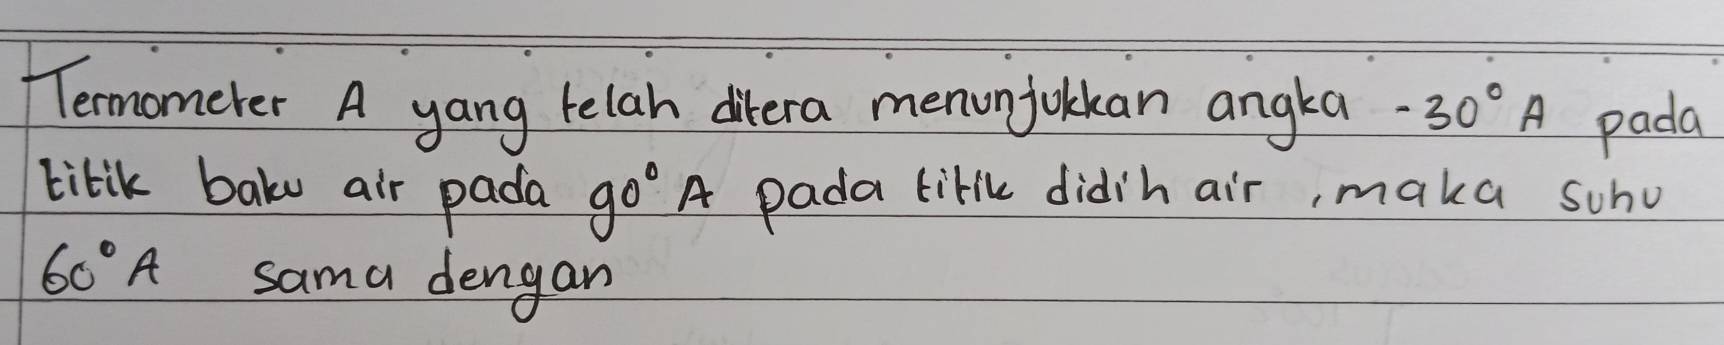 Termometer A yang telah ditera menunjukkan angka -30° A pada
titik baku air pada 90° A pada titik didih air, maka suhu
60° A sama dengan